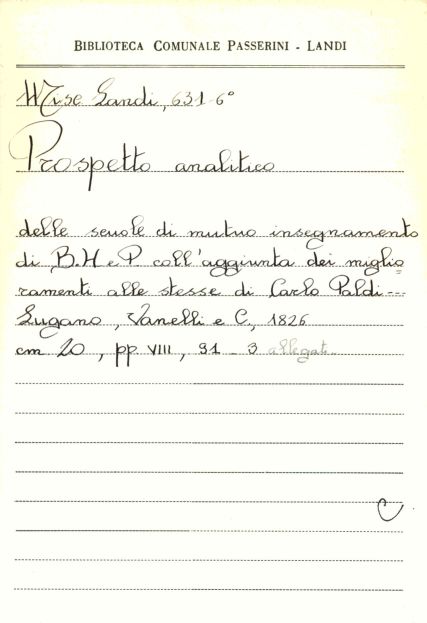 BIBLIOTECA COMUNALE PASSERINI - LANDI
Misc Landi, 631-6°
Prospetto analitico
delle scuole di mutuo insegnamento
di B. H e P. coll'aggiunta dei miglio=
ramenti alle stesse di Carlo Paldi---
Lugano, Vanelli e C., 1826
cm 20, pp. VIII, 91 - 3 allegati
C